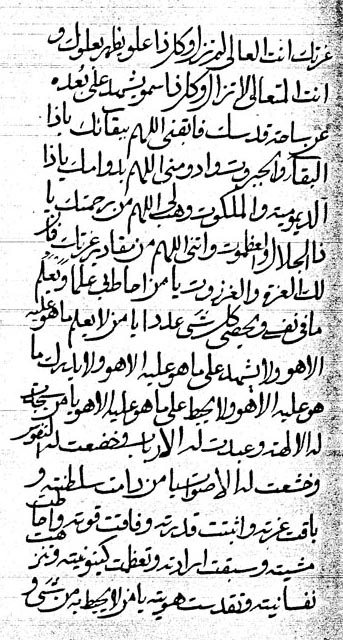 عزتك انت العالى لم تزل وكل ذا علو يظهر بعلوك و
انت المتعالى لا تزال وكل ذا سمو يشهد على بُعده
عن ساحة قدسك فابقنى اللهم ببقائك يا ذا
البقاء والجبروت وادومنى اللهم بدوامك يا ذا
الديمومية والملكوت وهب لى اللهم من رحمتك يا
ذا الجلال والعظموت واتنى اللهم من مقادير عزتك فان
لك العزة والعززوت يا من احاط بى علما ويعلم
ما فى نفسى ويحصى كل شىء عددا يا من لا يعلم ما هو عليه
الا هو ولا يشهد على ما هو عليه الا هو ولا يدرك ما
هو عليه الا هو ولا يحيط على ما هو عليه الا هو يا من
له الالهة وعبدت له الارباب وخضعت له النفوس
وخشعت له الاصوات يا من دامت سلطنته و
باقت عزته واثبتت قدرته وفاقت قوته واحاطت
مشيته وسبقت ارادته وتعظمت كينونيته
نفسانيته وتقدست هويته يا من لا يحيط به من شىء و